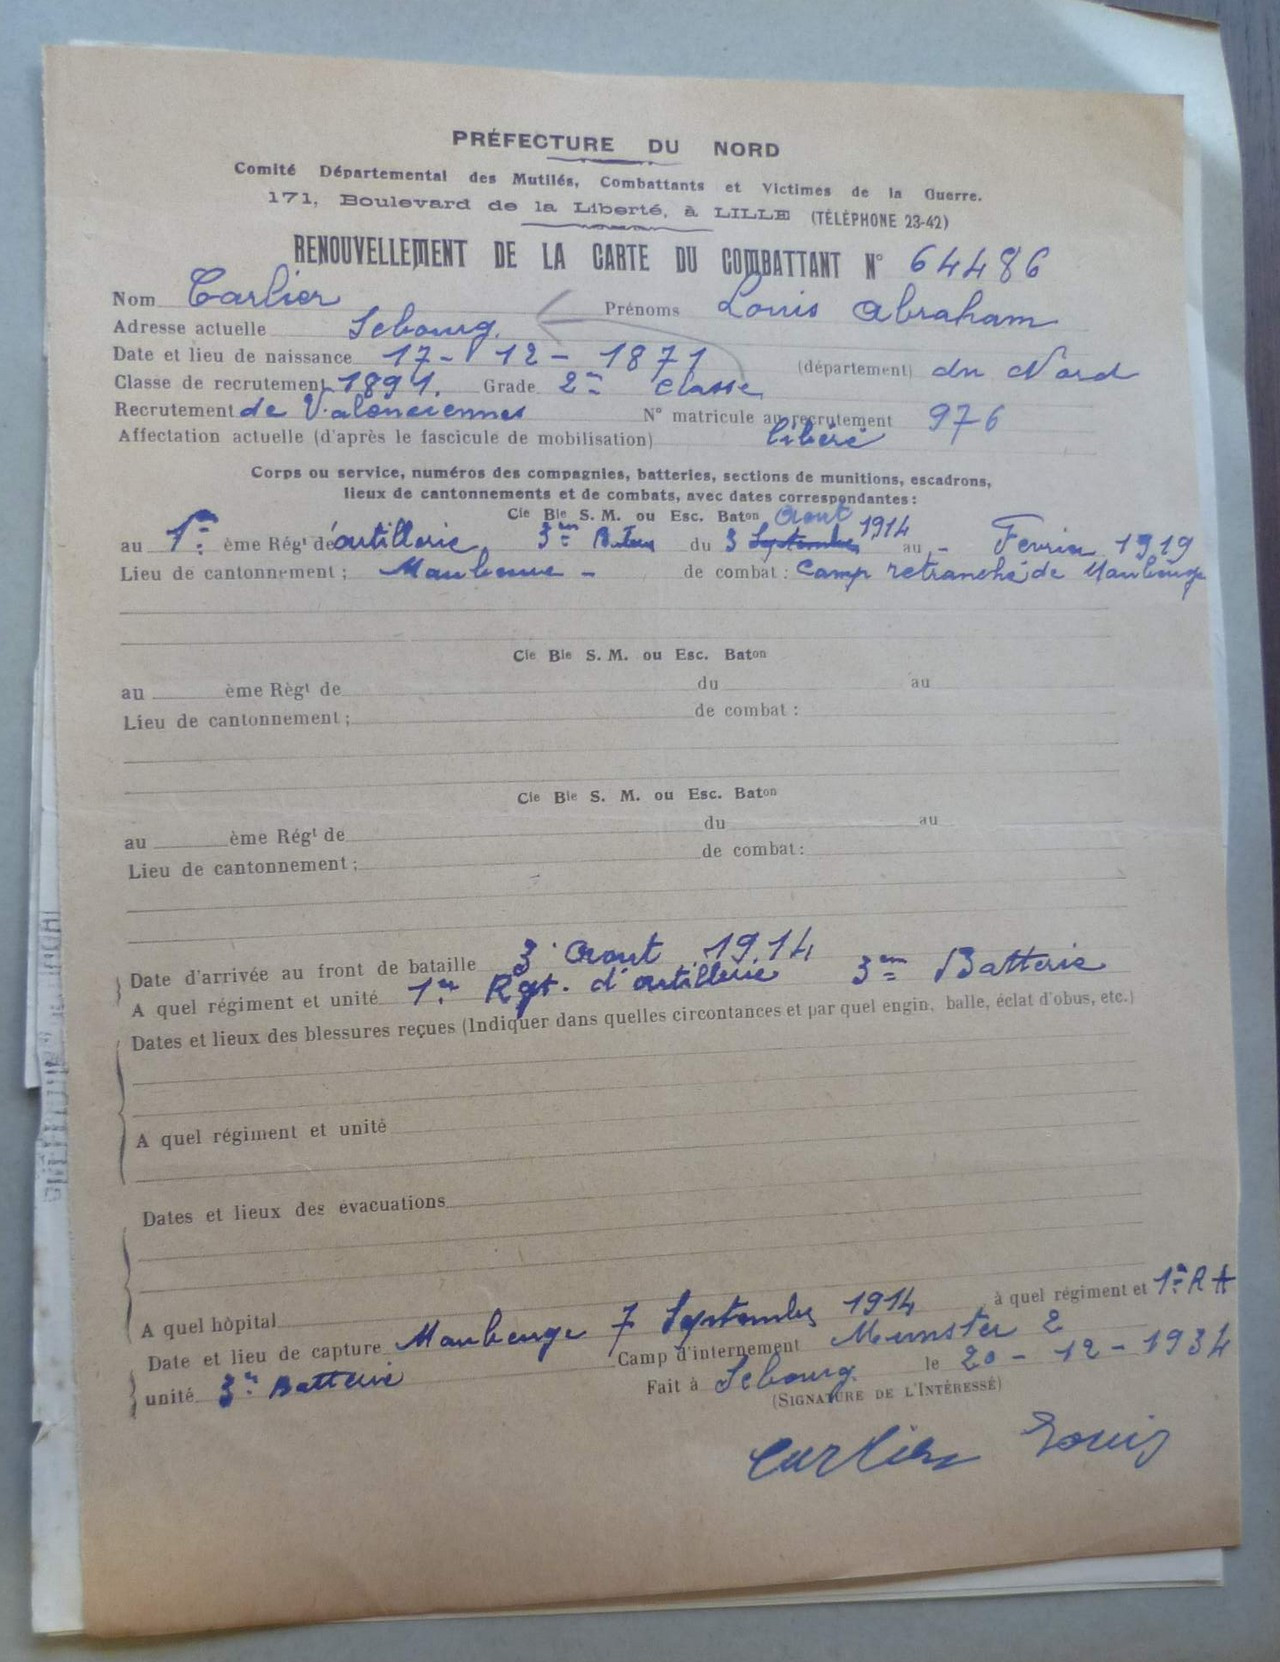 PRÉFECTURE DU NORD
Comité Départemental des Mutilés, Combattants et Victimes de la Guerre.
171, Boulevard de la Liberté, à LILLE (TÉLÉPHONE 23-42)
RENOUVELLEMENT DE LA CARTE DU COMBATTANT N° 64486
Nom Carlier Prénoms Louis Abraham
Adresse actuelle Sebourg.
Date et lieu de naissance 17 - 12 - 1871 (département) du Nord
Classe de recrutement 1891. Grade 2me Classe
Recrutement de Valenciennes N° matricule au recrutement 976
Affectation actuelle (d'après le fascicule de mobilisation) libéré
Corps ou service, numéros des compagnies, batteries, sections de munitions, escadrons,
lieux de cantonnements et de combats, avec dates correspondantes :
Cie Bie S. M. ou Esc. Baton Aout
au 1er ème Régt de artillerie 3em du 3 Septembre 1914 au - Fevrier 1919
Lieu de cantonnement ; Maubeuge - de combat : Camp retranché de Maubeuge
Cie Bie S. M. ou Esc. Baton
au ème Règt de du au
Lieu de cantonnement ; de combat :
Cie Bie S. M. ou Esc. Baton
au ème Régt de du au
Lieu de cantonnement ; de combat :
Date d'arrivée au front de bataille 3 Aout 1914
A quel régiment et unité 1er Rgt. d'artillerie 3em Batterie
Dates et lieux des blessures reçues (Indiquer dans quelles circontances et par quel engin, balle, éclat d'obus, etc.)
A quel régiment et unité
Dates et lieux des évacuations
A quel hôpital à quel régiment et 1er R A
Date et lieu de capture Maubeuge 7 Septembre 1914 Camp d'internement Munster 2
unité 3em Batterie Fait à Sebourg. le 20 - 12 - 1934
(SIGNATURE DE L'INTÉRESSÉ)
Carlier Louis